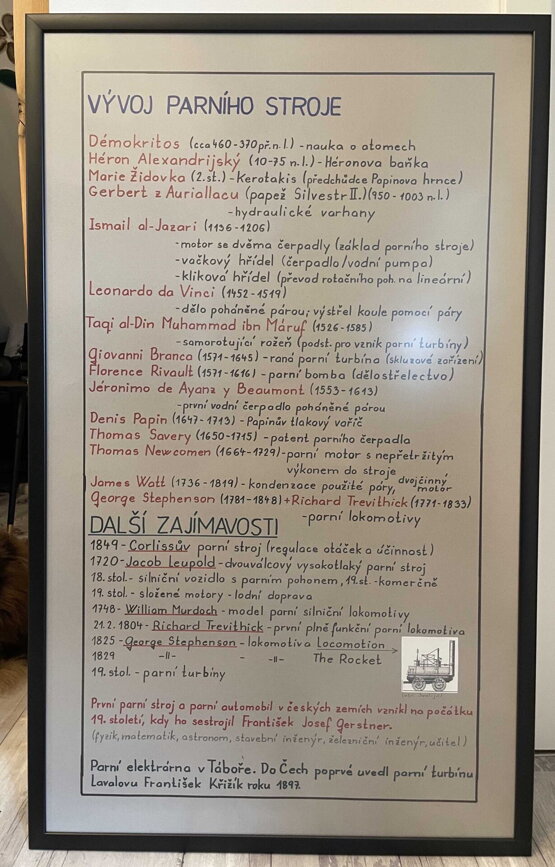 VÝVOJ PARNÍHO STROJE
Démokritos (cca 460-370 př. n. l.) - nauka o atomech
Héron Alexandrijský (10-75 n. l.) - Héronova baňka
Marie Židovka (2. st.) - Kerotakis (předchůdce Papinova hrnce)
Gerbert z Auriallacu (papež Silvestr II.) (950 - 1003 n. l.)
- hydraulické varhany
Ismail al-Jazari (1136 - 1206)
- motor se dvěma čerpadly (základ parního stroje)
- vačkový hřídel (čerpadlo/vodní pumpa)
- kliková hřídel (převod rotačního poh. na lineární)
Leonardo da Vinci (1452 - 1519)
- dělo poháněné párou, výstřel koule pomocí páry
Taqi al-Din Muhammad ibn Máruf (1526 - 1585)
- samorotující rožeň (podst. pro vznik parní turbíny)
Giovanni Branca (1571 - 1645) - raná parní turbína (skluzové zařízení)
Florence Rivault (1571 - 1616) - parní bomba (dělostřelectvo)
Jéronimo de Ayanz y Beaumont (1553 - 1613)
- první vodní čerpadlo poháněné párou
Denis Papin (1647 - 1713) - Papinův tlakový vařič
Thomas Savery (1650 - 1715) - patent parního čerpadla
Thomas Newcomen (1664 - 1729) - parní motor s nepřetržitým
výkonem do stroje
James Watt (1736 - 1819) - kondenzace použité páry, dvojčinný motor
George Stephenson (1781 - 1848) + Richard Trevithick (1771 - 1833)
- parní lokomotivy
DALŠÍ ZAJÍMAVOSTI
1849 - Corlissův parní stroj (regulace otáček a účinnost)
1720 - Jacob Leupold - dvouválcový vysokotlaký parní stroj
18. stol. - silniční vozidlo s parním pohonem, 19. st. - komerčně
19. stol. - složené motory - lodní doprava
1748 - William Murdoch - model parní silniční lokomotivy
21. 2. 1804 - Richard Trevithick - první plně funkční parní lokomotiva
1825 - George Stephenson - lokomotiva Locomotion
1829 -II- - -II- The Rocket
19. stol. - parní turbíny
První parní stroj a parní automobil v českých zemích vznikl na počátku
19. století, kdy ho sestrojil František Josef Gerstner.
(fyzik, matematik, astronom, stavební inženýr, železniční inženýr, učitel)
Parní elektrárna v Táboře. Do Čech poprvé uvedl parní turbínu
Lavalovu František Křižík roku 1897.